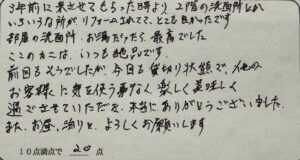 3年前に来させてもらった時より、2階の洗面所とか
いろいろな所がリフォームされてて、とても良かったです
部屋の洗面所、お湯だったら、最高でした
ここのカニは、いつも絶品です。
前回もそうでしたが、今回も貸切り状態で、他の
お客様に気を使う事なく、楽しく美味しく
過ごさせていただき、本当にありがとうございました。
また、お昼、泊りと、よろしくお願いします
10点満点で 20 点